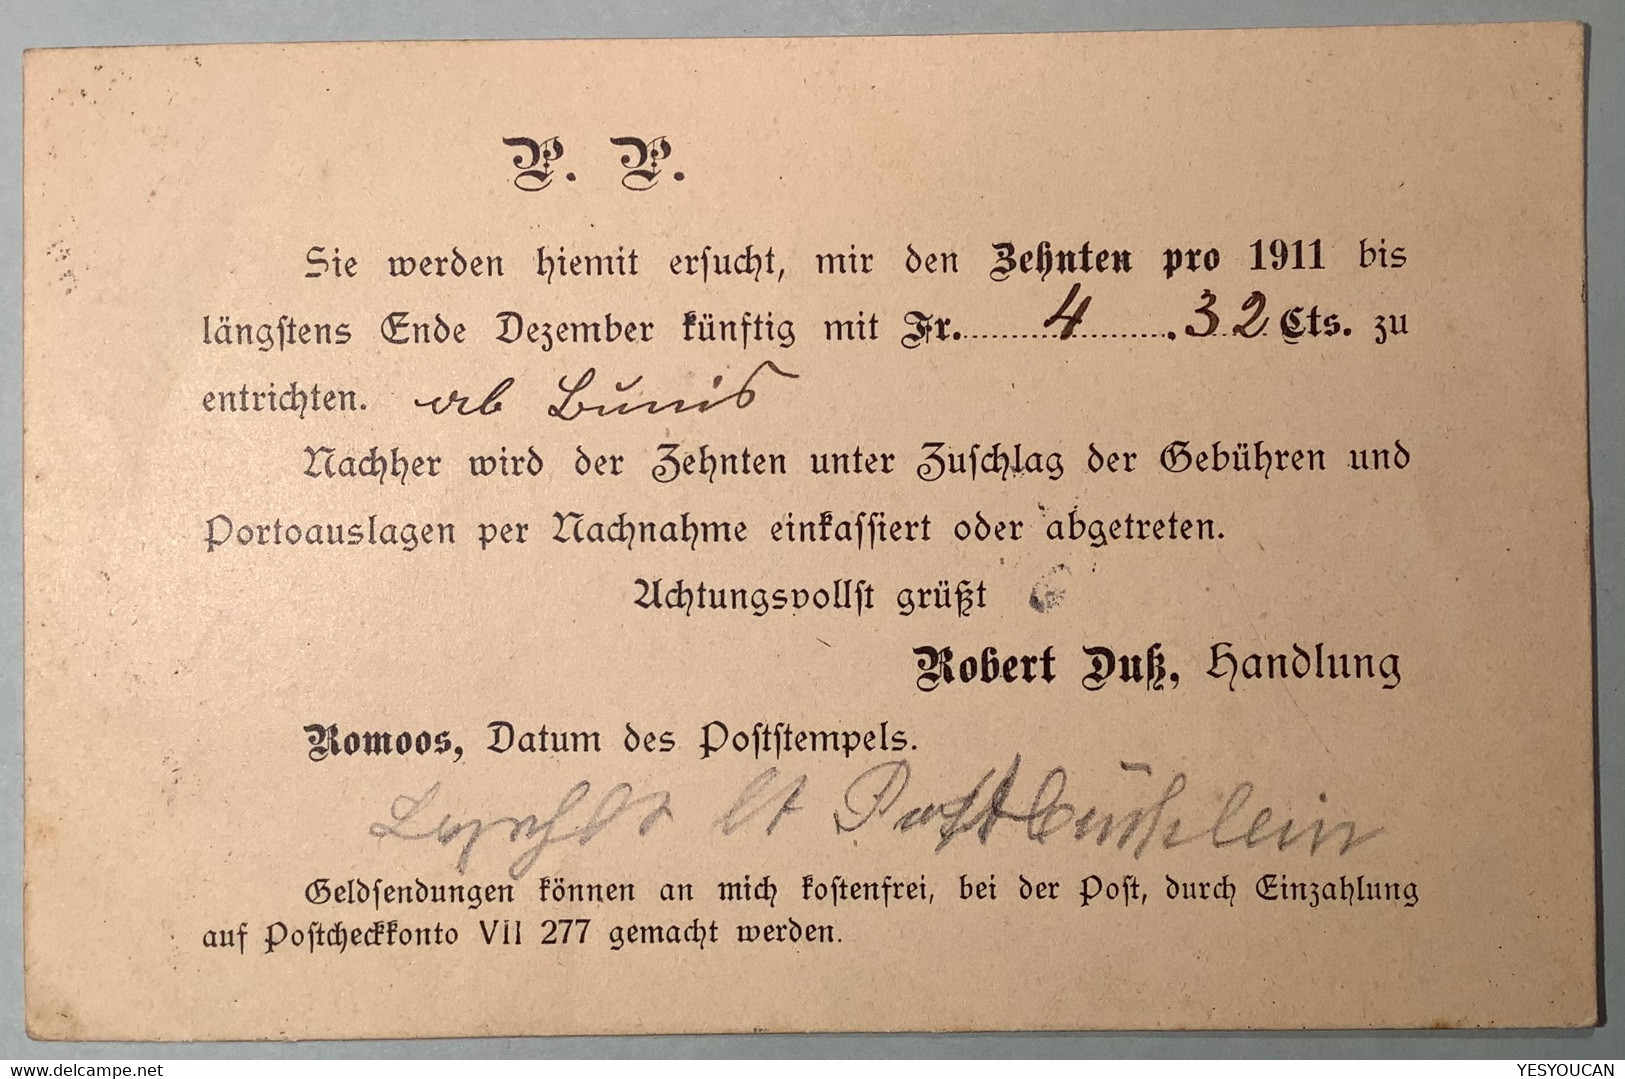 P. P.
Sie werden hiemit ersucht, mir den Zehnten pro 1911 bis
längstens Ende Dezember künftig mit Fr. 4.32 Cts. zu
entrichten. ab
Nachher wird der Zehnten unter Zuschlag der Gebühren und
Portoauslagen per Nachnahme einkassiert oder abgetreten.
Achtungsvollst grüßt
Robert Duß, Handlung
Romoos, Datum des Poststempels.
lt Postbüchlein
Geldsendungen können an mich kostenfrei, bei der Post, durch Einzahlung
auf Postcheckkonto VII 277 gemacht werden.
delcampe.net
YESYOUCAN